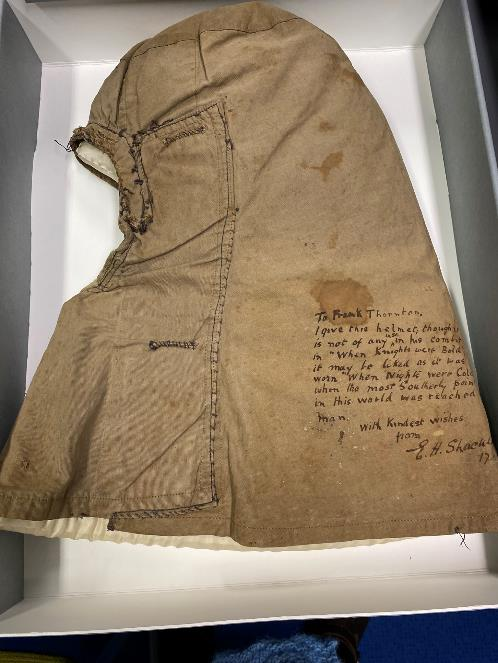 To Frank Thornton,
I give this helmet, though it
is not of any use in his comb
in "When Knights were Bold"
it may be liked as it was
worn "When Nights were Cold
when the most Southerly poin
in this world was reached
man.
With kindest wishes
from
E. H. Shackl